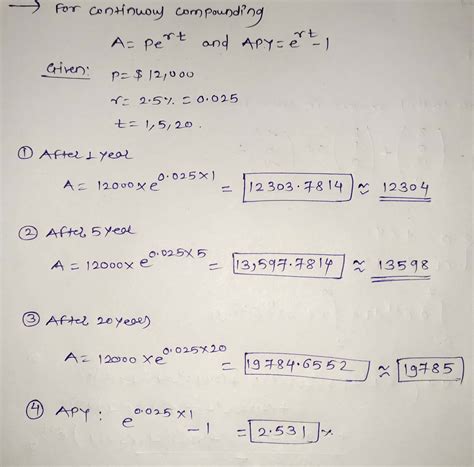 → For continuous compounding
A = Pe^rt and APY = e^rt - 1
Given: P = $12,000
r = 2.5% = 0.025
t = 1, 5, 20.
① After 1 year
A = 12000 x e^0.025x1 = 12303.7814 ≈ 12304
② After 5 year
A = 12000 x e^0.025x5 = 13,597.7814 ≈ 13598
③ After 20 years
A = 12000 x e^0.025x20 = 19784.6552 ≈ 19785
④ APY : e^0.025x1 - 1 = 2.531 %